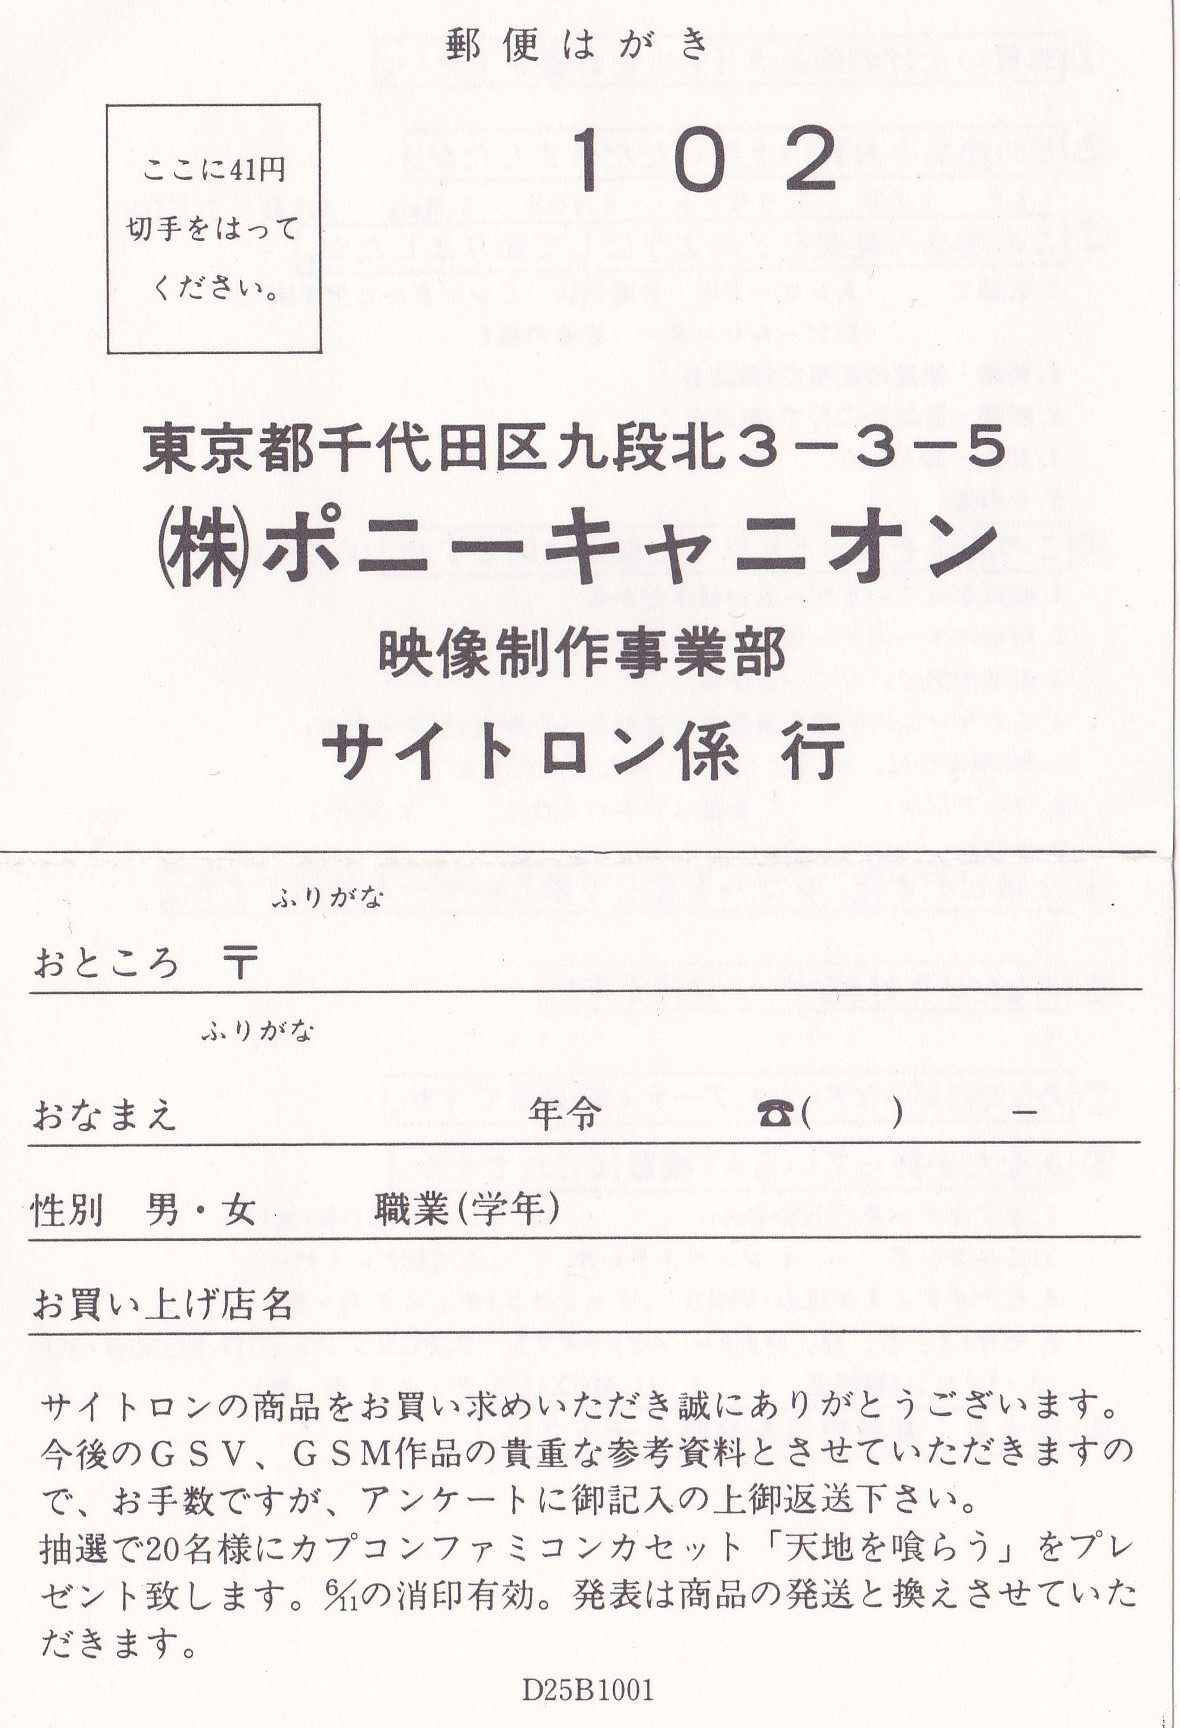 郵便はがき
ここに41円
切手をはって
ください。
102
東京都千代田区九段北3－3－5
㈱ポニーキャニオン
映像制作事業部
サイトロン係 行
ふりがな
おところ 〒
ふりがな
おなまえ 年令 ☎( ) －
性別 男・女 職業(学年)
お買い上げ店名
サイトロンの商品をお買い求めいただき誠にありがとうございます。
今後のGSV、GSM作品の貴重な参考資料とさせていただきますの
で、お手数ですが、アンケートに御記入の上御返送下さい。
抽選で20名様にカプコンファミコンカセット「天地を喰らう」をプレ
ゼント致します。6/11の消印有効。発表は商品の発送と換えさせていた
だきます。
D25B1001